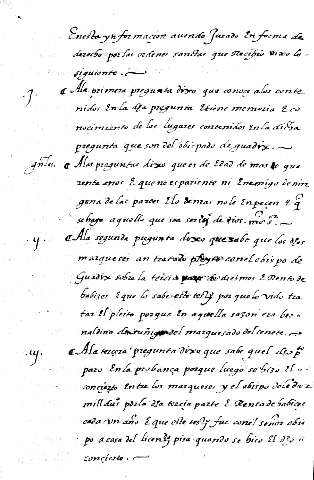 En esta ynformaçion avendo Jurado En forma de
derecho por las ordenes sanctas que Reçibio dixo lo
siguiente.
j. A la primera pregunta dixo que conoçe a los conte
nidos En la dha pregunta E tiene memoria E co
noçimiento de los lugares contenidos En la dicha
pregunta que son del obispado de guadix
A las preguntas dixo que es de Edad de mas de qua
renta años E que no es pariente ni Enemigo de nin
guna de las partes E lo demas no le Enpeçen E q
aquello que sea
ij. A la segunda pregunta dixo que sabe que los dhos
marqueses an traydo pleyto con el obispo de
Guadix sobre la terçia parte de diezmos E Renta de
habizes E que lo sabe este tes° porque lo vido tra
tar El pleito porque En aquella sazon era be
del marquesado del çenete.
iij. A la terçera pregunta dixo que sabe quel dho
paro En la probança porque luego se hizo El co
nçierto Entre los marqueses y el obispo de
mill por la dha terçia parte E Renta de habizes
cada un año E que este tes° fue con el señor obis
po a casa del liçen° pisa quando se hizo El dho
conçierto.